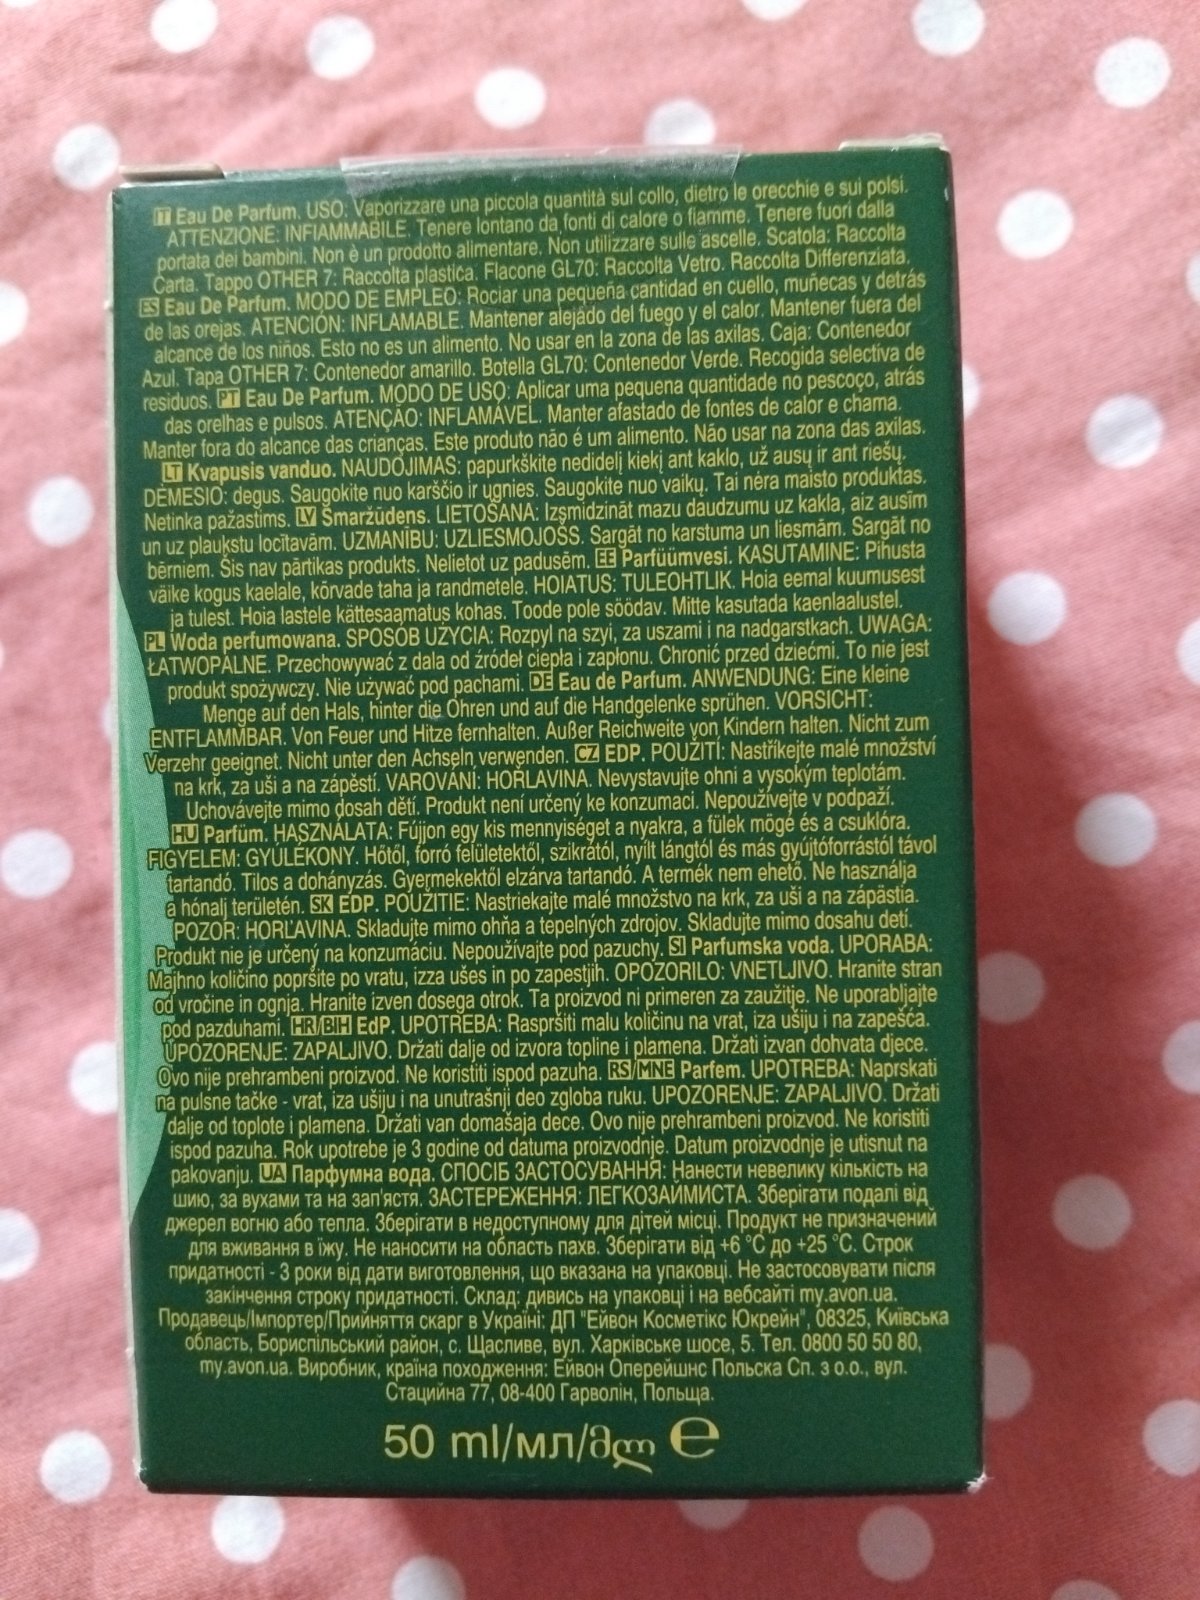 IT Eau De Parfum. USO: Vaporizzare una piccola quantità sul collo, dietro le orecchie e sui polsi.
ATTENZIONE: INFIAMMABILE. Tenere lontano da fonti di calore o fiamme. Tenere fuori dalla
portata dei bambini. Non è un prodotto alimentare. Non utilizzare sulle ascelle. Scatola: Raccolta
Carta. Tappo OTHER 7: Raccolta plastica. Flacone GL70: Raccolta Vetro. Raccolta Differenziata.
ES Eau De Parfum. MODO DE EMPLEO: Rociar una pequeña cantidad en cuello, muñecas y detrás
de las orejas. ATENCIÓN: INFLAMABLE. Mantener alejado del fuego y el calor. Mantener fuera del
alcance de los niños. Esto no es un alimento. No usar en la zona de las axilas. Caja: Contenedor
Azul. Tapa OTHER 7: Contenedor amarillo. Botella GL70: Contenedor Verde. Recogida selectiva de
residuos. PT Eau De Parfum. MODO DE USO: Aplicar uma pequena quantidade no pescoço, atrás
das orelhas e pulsos. ATENÇÃO: INFLAMÁVEL. Manter afastado de fontes de calor e chama.
Manter fora do alcance das crianças. Este produto não é um alimento. Não usar na zona das axilas.
LT Kvapusis vanduo. NAUDOJIMAS: papurkškite nedidelį kiekį ant kaklo, už ausų ir ant riešų.
DĖMESIO: degus. Saugokite nuo karščio ir ugnies. Saugokite nuo vaikų. Tai nėra maisto produktas.
Netinka pažastims. LV Smaržūdens. LIETOŠANA: Izsmidzināt mazu daudzumu uz kakla, aiz ausīm
un uz plaukstu locītavām. UZMANĪBU: UZLIESMOJOŠS. Sargāt no karstuma un liesmām. Sargāt no
bērniem. Šis nav pārtikas produkts. Nelietot uz padusēm. EE Parfüümvesi. KASUTAMINE: Pihusta
väike kogus kaelale, kõrvade taha ja randmetele. HOIATUS: TULEOHTLIK. Hoia eemal kuumusest
ja tulest. Hoia lastele kättesaamatus kohas. Toode pole söödav. Mitte kasutada kaenlaalustel.
PL Woda perfumowana. SPOSÓB UŻYCIA: Rozpyl na szyi, za uszami i na nadgarstkach. UWAGA:
ŁATWOPALNE. Przechowywać z dala od źródeł ciepła i zapłonu. Chronić przed dziećmi. To nie jest
produkt spożywczy. Nie używać pod pachami. DE Eau de Parfum. ANWENDUNG: Eine kleine
Menge auf den Hals, hinter die Ohren und auf die Handgelenke sprühen. VORSICHT:
ENTFLAMMBAR. Von Feuer und Hitze fernhalten. Außer Reichweite von Kindern halten. Nicht zum
Verzehr geeignet. Nicht unter den Achseln verwenden. CZ EDP. POUŽITÍ: Nastříkejte malé množství
na krk, za uši a na zápěstí. VAROVÁNÍ: HOŘLAVINA. Nevystavujte ohni a vysokým teplotám.
Uchovávejte mimo dosah dětí. Produkt není určený ke konzumaci. Nepoužívejte v podpaží.
HU Parfüm. HASZNÁLATA: Fújjon egy kis mennyiséget a nyakra, a fülek mögé és a csuklóra.
FIGYELEM: GYÚLÉKONY. Hőtől, forró felületektől, szikrától, nyílt lángtól és más gyújtóforrástól távol
tartandó. Tilos a dohányzás. Gyermekektől elzárva tartandó. A termék nem ehető. Ne használja
a hónalj területén. SK EDP. POUŽITIE: Nastriekajte malé množstvo na krk, za uši a na zápästia.
POZOR: HORĽAVINA. Skladujte mimo ohňa a tepelných zdrojov. Skladujte mimo dosahu detí.
Produkt nie je určený na konzumáciu. Nepoužívajte pod pazuchy. SI Parfumska voda. UPORABA:
Majhno količino popršite po vratu, izza ušes in po zapestjih. OPOZORILO: VNETLJIVO. Hranite stran
od vročine in ognja. Hranite izven dosega otrok. Ta proizvod ni primeren za zaužitje. Ne uporabljajte
pod pazduhami. HR/BIH EdP. UPOTREBA: Raspršiti malu količinu na vrat, iza ušiju i na zapešća.
UPOZORENJE: ZAPALJIVO. Držati dalje od izvora topline i plamena. Držati izvan dohvata djece.
Ovo nije prehrambeni proizvod. Ne koristiti ispod pazuha. RS/MNE Parfem. UPOTREBA: Naprskati
na pulsne tačke - vrat, iza ušiju i na unutrašnji deo zgloba ruku. UPOZORENJE: ZAPALJIVO. Držati
dalje od toplote i plamena. Držati van domašaja dece. Ovo nije prehrambeni proizvod. Ne koristiti
ispod pazuha. Rok upotrebe je 3 godine od datuma proizvodnje. Datum proizvodnje je utisnut na
pakovanju. UA Парфумна вода. СПОСІБ ЗАСТОСУВАННЯ: Нанести невелику кількість на
шию, за вухами та на зап'ястя. ЗАСТЕРЕЖЕННЯ: ЛЕГКОЗАЙМИСТА. Зберігати подалі від
джерел вогню або тепла. Зберігати в недоступному для дітей місці. Продукт не призначений
для вживання в їжу. Не наносити на область пахв. Зберігати від +6 °C до +25 °C. Строк
придатності - 3 роки від дати виготовлення, що вказана на упаковці. Не застосовувати після
закінчення строку придатності. Склад: дивись на упаковці і на вебсайті my.avon.ua.
Продавець/Імпортер/Прийняття скарг в Україні: ДП "Ейвон Косметікс Юкрейн", 08325, Київська
область, Бориспільський район, с. Щасливе, вул. Харківське шосе, 5. Тел. 0800 50 50 80,
my.avon.ua. Виробник, країна походження: Ейвон Оперейшнс Польска Сп. з о.о., вул.
Стаційна 77, 08-400 Гарволін, Польща.
50 ml/мл/მლ ℮